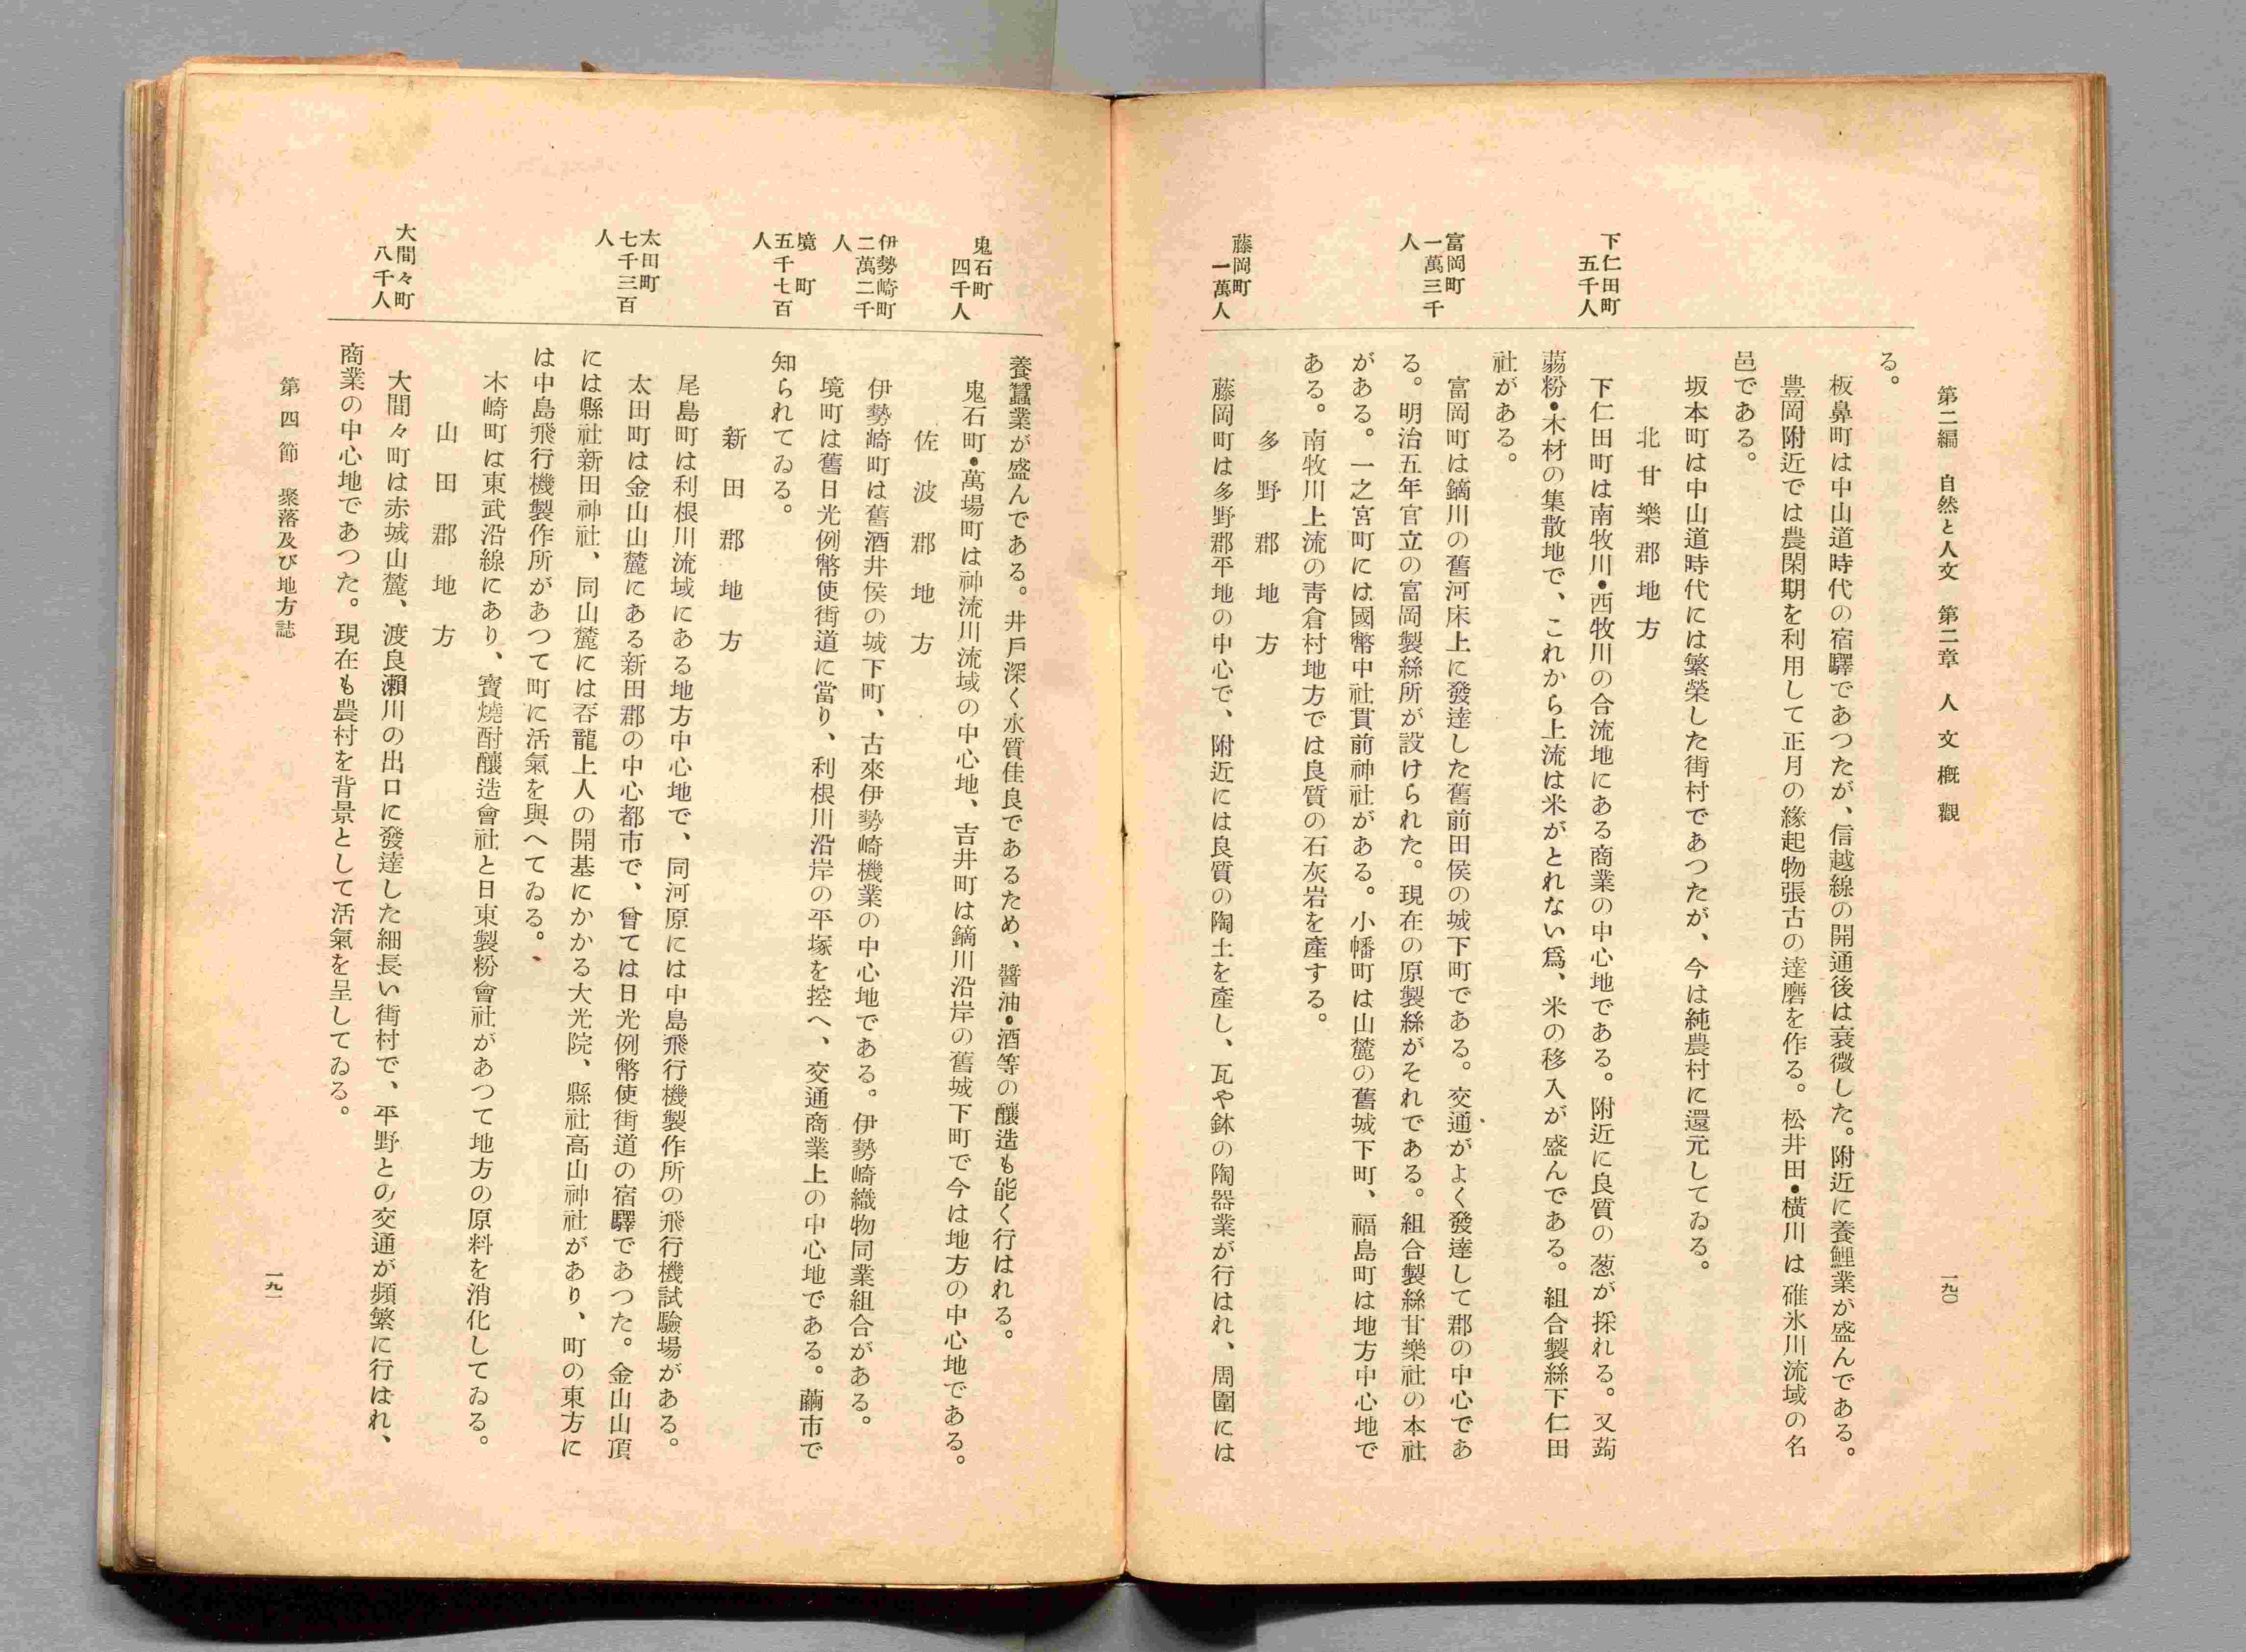 第二編　自然と人文　第二章　人文概觀
一九〇
る。
板鼻町は中山道時代の宿驛であつたが、信越線の開通後は衰微した。附近に養鯉業が盛んである。
豊岡附近では農閑期を利用して正月の緣起物張古の達磨を作る。松井田・橫川は碓氷川流域の名
邑である。
坂本町は中山道時代には繁榮した街村であつたが、今は純農村に還元してゐる。
北甘樂郡地方
下仁田町
五千人
下仁田町は南牧川・西牧川の合流地にある商業の中心地である。附近に良質の葱が採れる。又蒟
蒻粉・木材の集散地で、これから上流は米がとれない爲、米の移入が盛んである。組合製絲下仁田
社がある。
富岡町
一萬三千
人
富岡町は鏑川の舊河床上に發達した舊前田侯の城下町である。交通がよく發達して郡の中心であ
る。明治五年官立の富岡製絲所が設けられた。現在の原製絲がそれである。組合製絲甘樂社の本社
がある。一之宮町には國幣中社貫前神社がある。小幡町は山麓の舊城下町、福島町は地方中心地で
ある。南牧川上流の靑倉村地方では良質の石灰岩を產する。
多野郡地方
藤岡町
一萬人
藤岡町は多野郡平地の中心で、附近には良質の陶土を產し、瓦や鉢の陶器業が行はれ、周圍には
養蠶業が盛んである。井戶深く水質佳良であるため、醬油・酒等の釀造も能く行はれる。
鬼石町
四千人
鬼石町・萬場町は神流川流域の中心地、吉井町は鏑川沿岸の舊城下町で今は地方の中心地である。
佐波郡地方
伊勢崎町
二萬二千
人
伊勢崎町は舊酒井侯の城下町、古來伊勢崎機業の中心地である。伊勢崎織物同業組合がある。
境町
五千七百
人
境町は舊日光例幣使街道に當り、利根川沿岸の平塚を控へ、交通商業上の中心地である。繭市で
知られてゐる。
新田郡地方
尾島町は利根川流域にある地方中心地で、同河原には中島飛行機製作所の飛行機試驗場がある。
太田町
七千三百
人
太田町は金山山麓にある新田郡の中心都市で、曾ては日光例幣使街道の宿驛であつた。金山山頂
には縣社新田神社、同山麓には呑龍上人の開基にかかる大光院、縣社高山神社があり、町の東方に
は中島飛行機製作所があつて町に活氣を與へてゐる。
木崎町は東武沿線にあり、寶燒酎釀造會社と日東製粉會社があつて地方の原料を消化してゐる。
山田郡地方
大間々町
八千人
大間々町は赤城山麓、渡良瀨川の出口に發達した細長い街村で、平野との交通が頻繁に行はれ、
商業の中心地であつた。現在も農村を背景として活氣を呈してゐる。
第四節　聚落及び地方誌
一九一